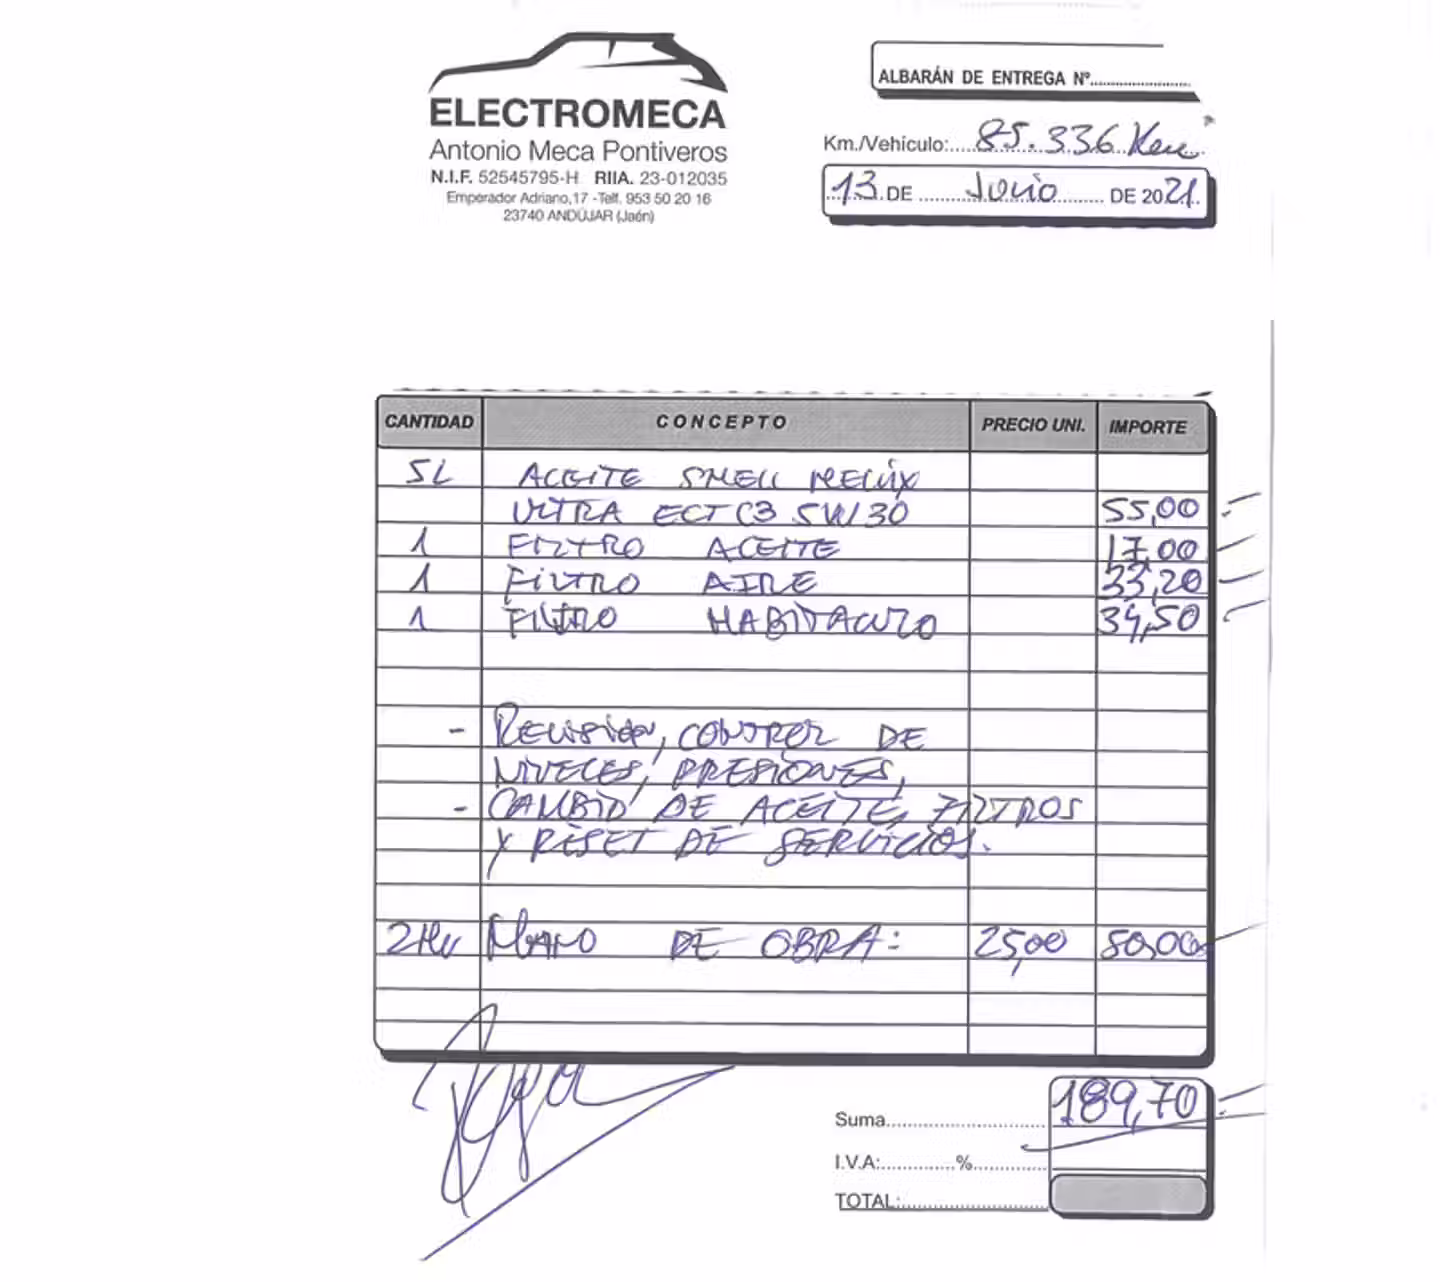 ELECTROMECA
Antonio Meca Pontiveros
N.I.F. 52545795-H RIIA. 23-012035
Emperador Adriano,17 -Telf. 953 50 20 16
23740 ANDÚJAR (Jaén)
ALBARÁN DE ENTREGA Nº
Km./Vehículo: 85.336 Km
13 DE Junio DE 2021
CANTIDAD CONCEPTO PRECIO UNI. IMPORTE
5L ACEITE SHELL HELIX
ULTRA ECT C3 5W30 55,00
1 FILTRO ACEITE 17,00
1 FILTRO AIRE 33,20
1 FILTRO HABITACULO 34,50
- REVISIÓN, CONTROL DE
NIVELES, PRESIONES,
- CAMBIO DE ACEITE, FILTROS
Y RESET DE SERVICIOS.
2Hr MANO DE OBRA: 25,00 50,00
Suma 189,70
I.V.A: %
TOTAL: